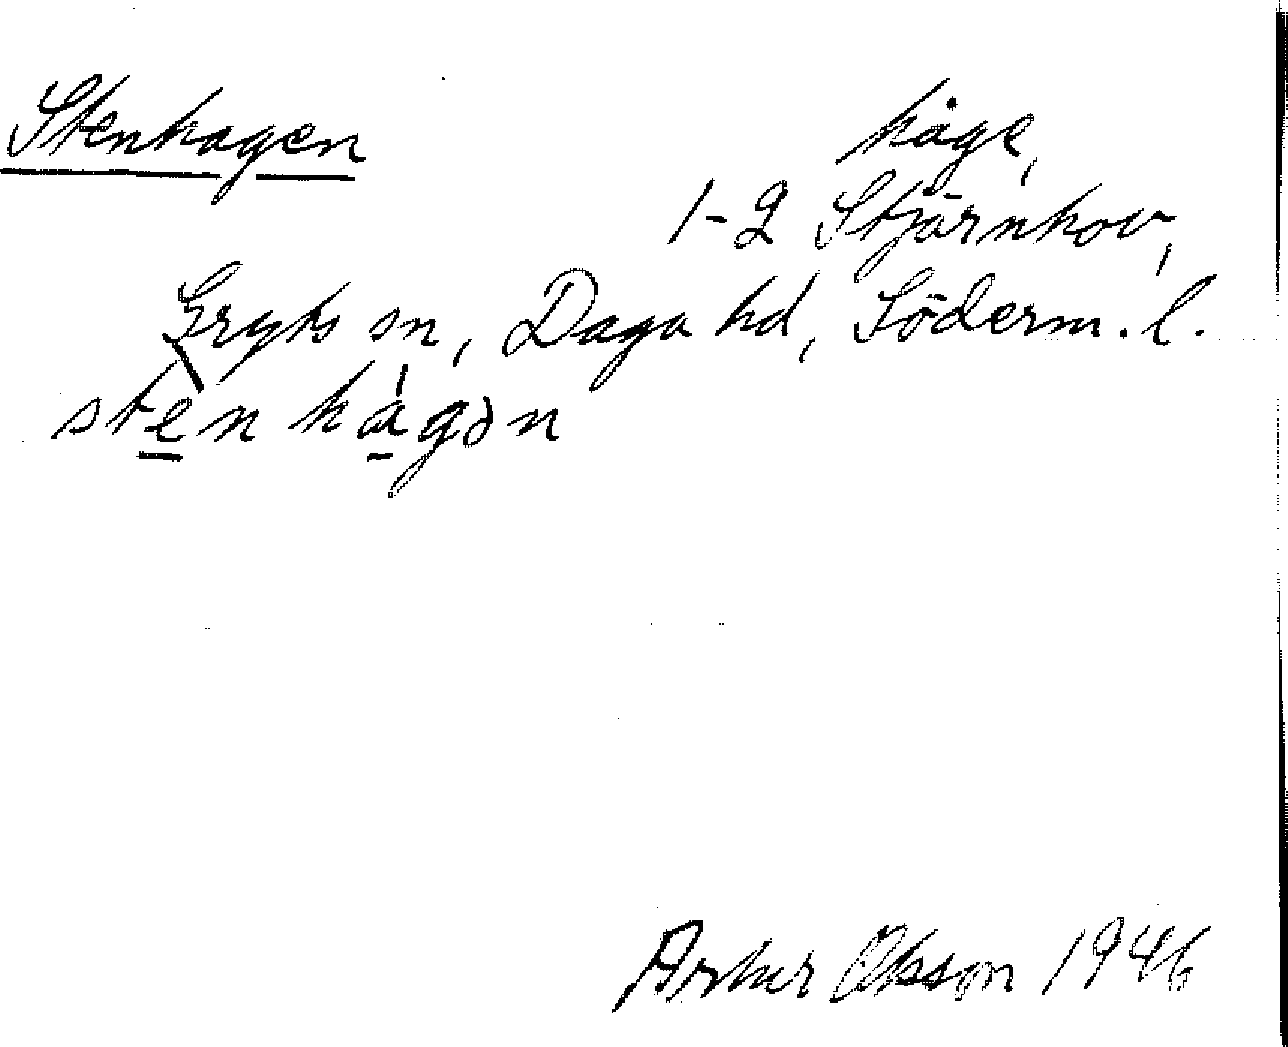 Stenhagen
håge,
1-2 Stjärnhov,
Gryts sn, Daga hd, Söderm. l.
stèn hágən
Artur Olsson 1946